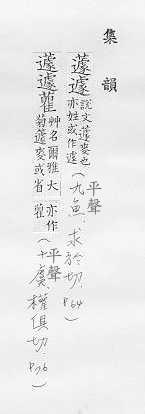 集韻
蘧蘧 說文蘧麥也
亦姓或作璩
(九魚.求於切.P64)
平聲
蘧蘧蘿 艸名爾雅大
菊蘧麥或省 亦作
雚
(十虞.權俱切.P76)
平聲